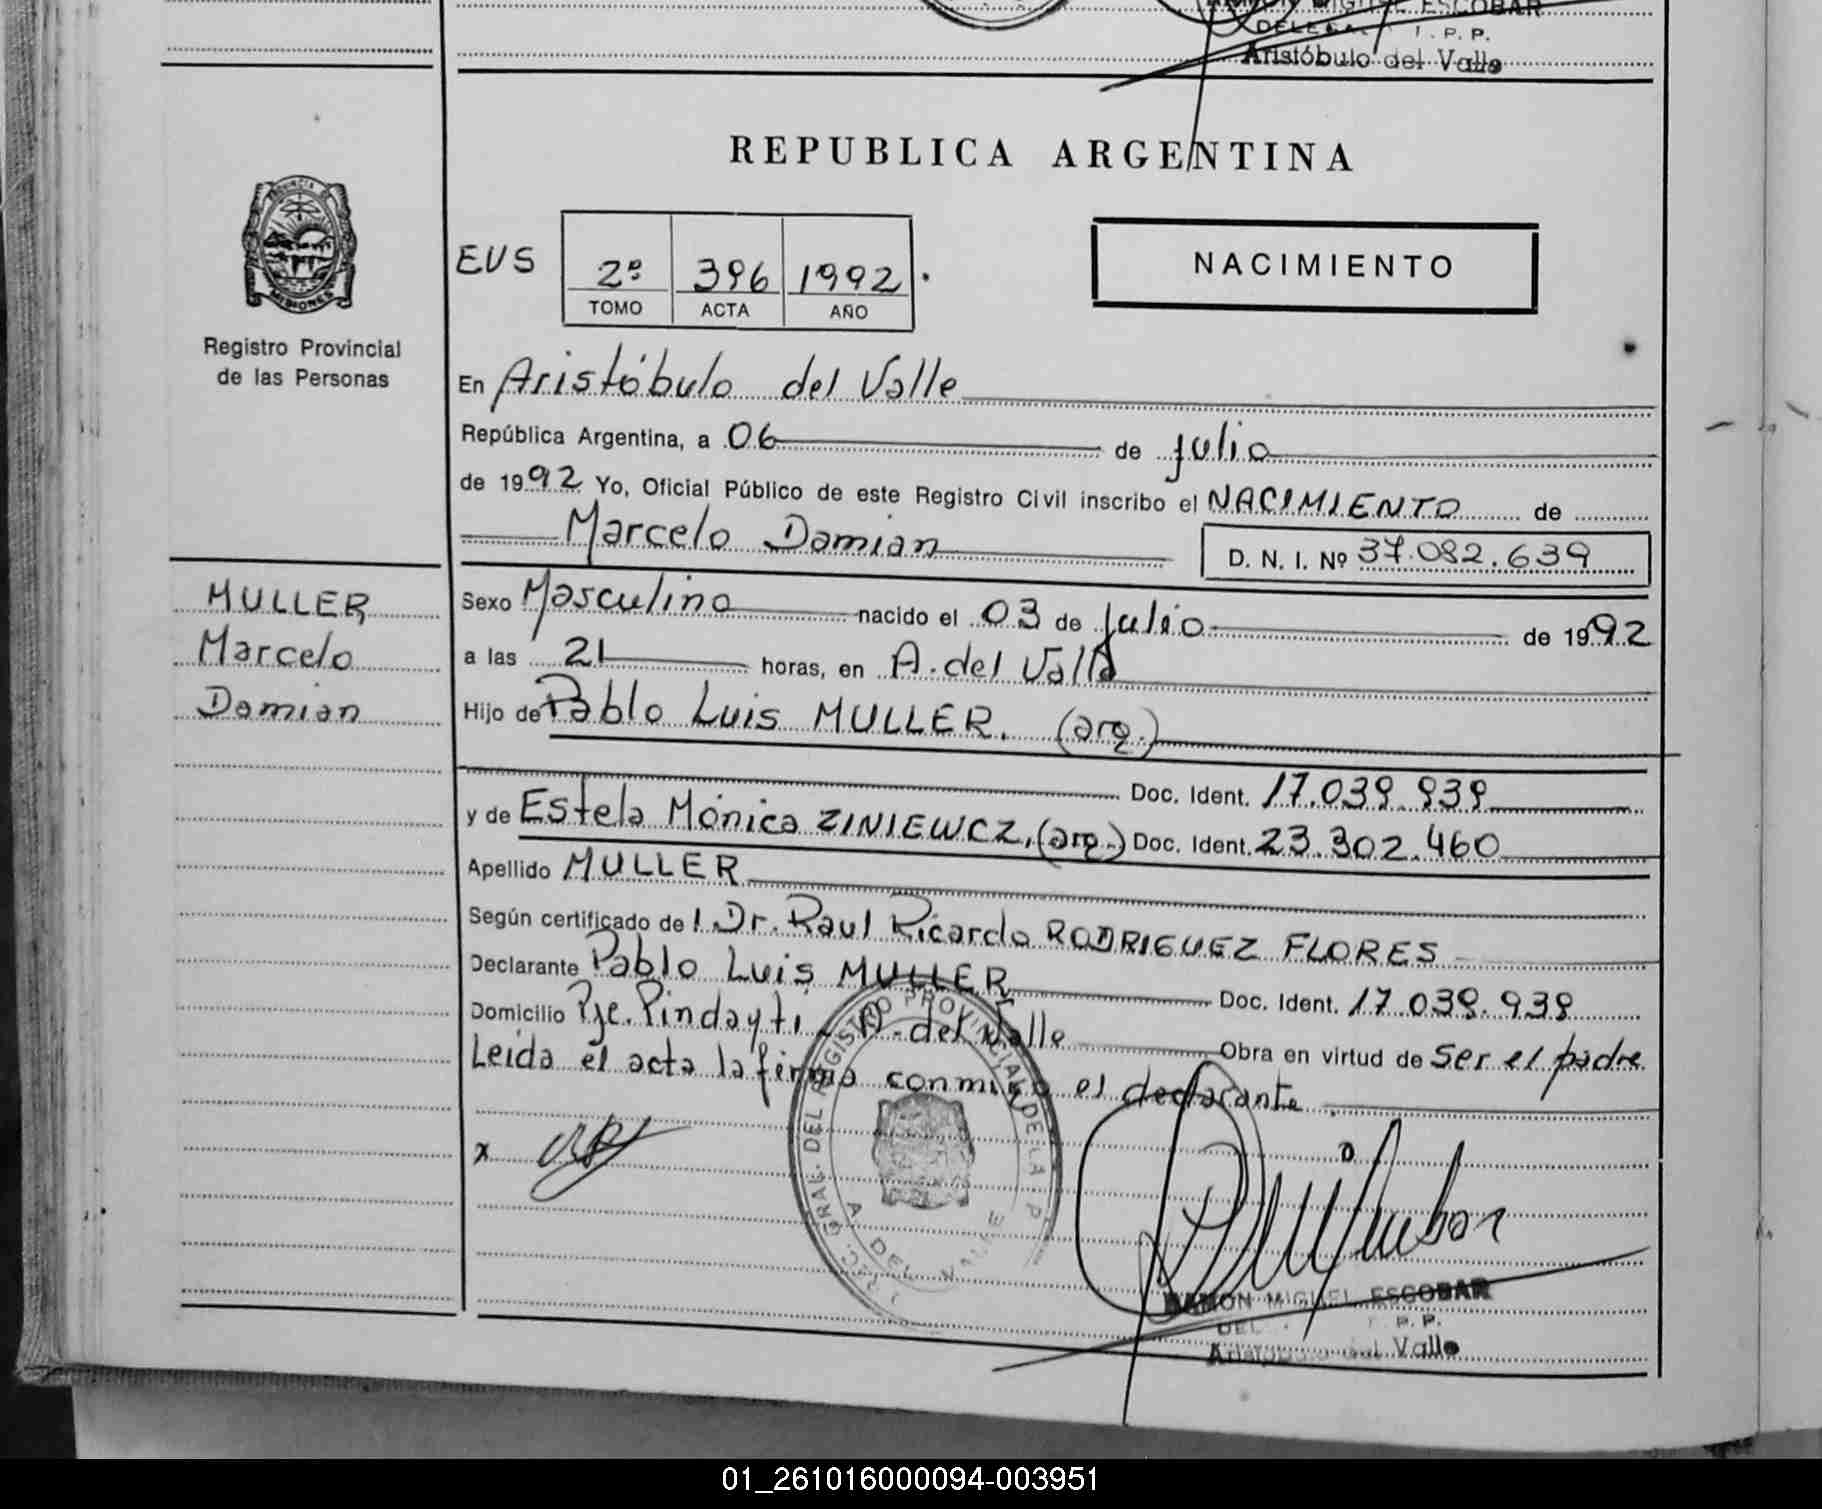 MIGUEL ESCOBAR
I. P. P.
Aristóbulo del Valle
REPUBLICA ARGENTINA
PROVINCIA DE
MISIONES
Registro Provincial
de las Personas
EUS 2º 396 1992 .
TOMO ACTA AÑO
NACIMIENTO
En Aristóbulo del Valle
República Argentina, a 06 de julio
de 1992 Yo, Oficial Público de este Registro Civil inscribo el NACIMIENTO de
Marcelo Damian
D. N. I. Nº 37.082.639
MULLER
Marcelo
Damian
Sexo Masculino nacido el 03 de julio de 1992
a las 21 horas, en A. del Valle
Hijo de Pablo Luis MULLER. (arg.)
Doc. Ident. 17.039.939
y de Estela Mónica ZINIEWCZ, (arg.) Doc. Ident. 23.302.460
Apellido MULLER
Según certificado de l Dr. Raul Ricardo RODRIGUEZ FLORES
Declarante Pablo Luis MULLER Doc. Ident. 17.039.939
Domicilio Pje. Pindayti - A. del Valle Obra en virtud de ser el padre
Leída el acta la firma conmigo el declarante
x
DREC. GRAL. DEL REGISTRO PROVINCIAL DE LA P
A. DEL VALLE
RAMON MIGUEL ESCOBAR
DEL P. P.
Aristóbulo del Valle
01_261016000094-003951